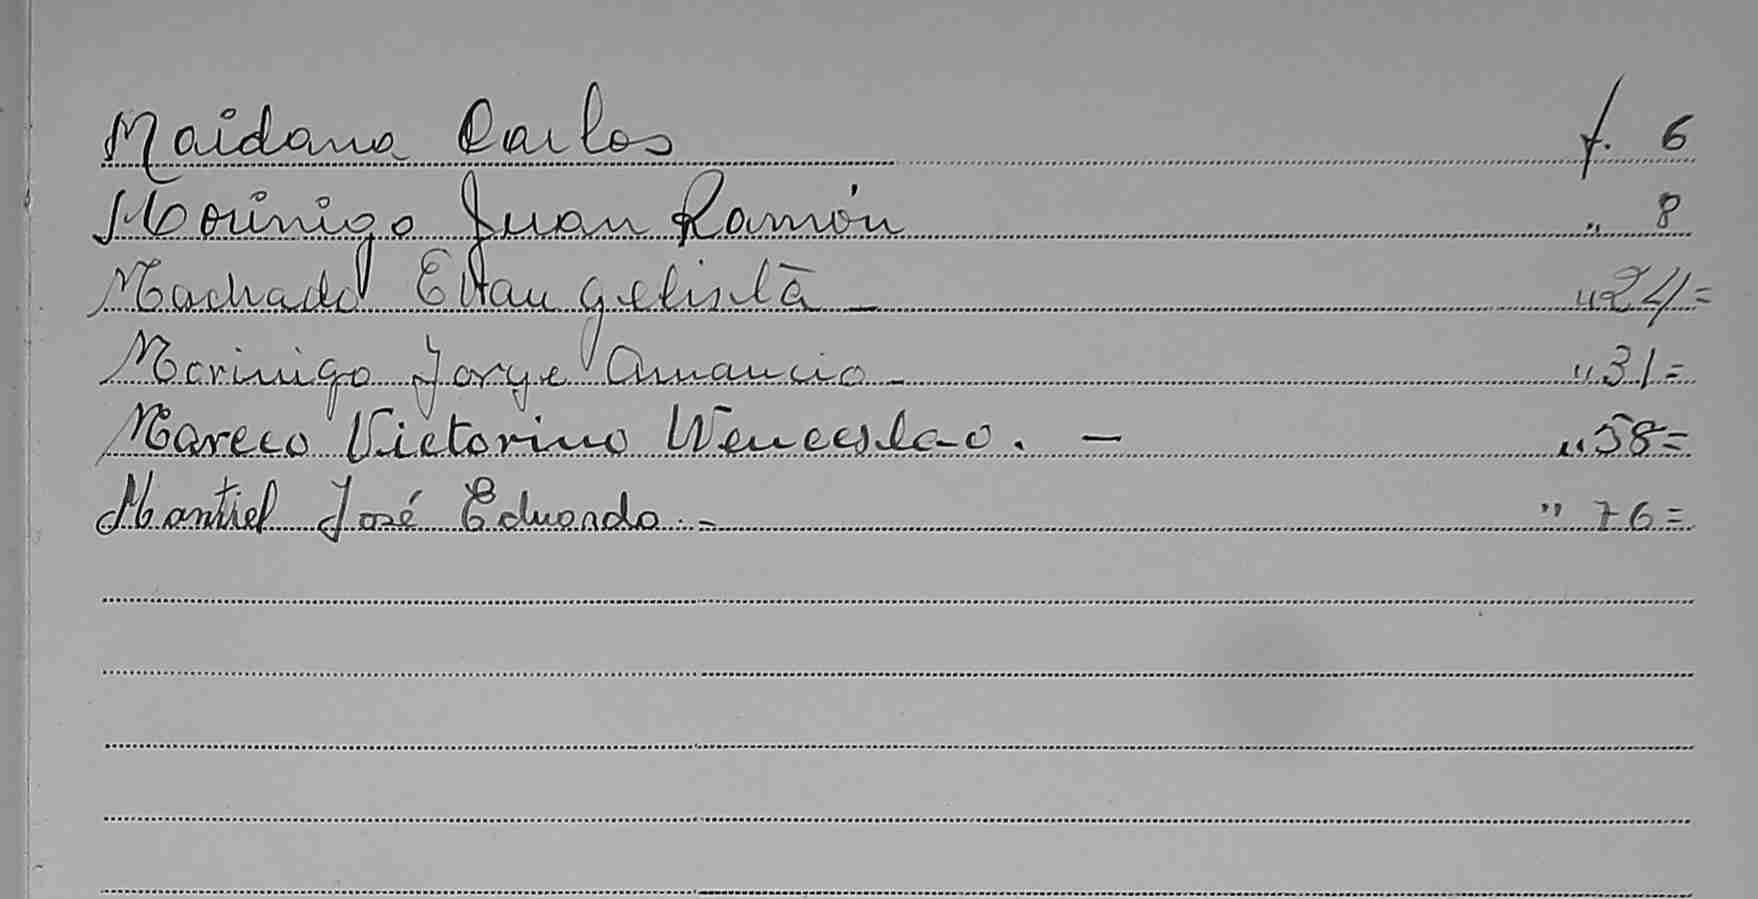 Maidana Carlos f. 6
Morinigo Juan Ramón " 8
Machado Evangelista - " 24=
Morinigo Jorge Amancio - " 31=
Mareco Victorino Wenceslao. - " 58=
Montiel José Eduardo. - " 76=